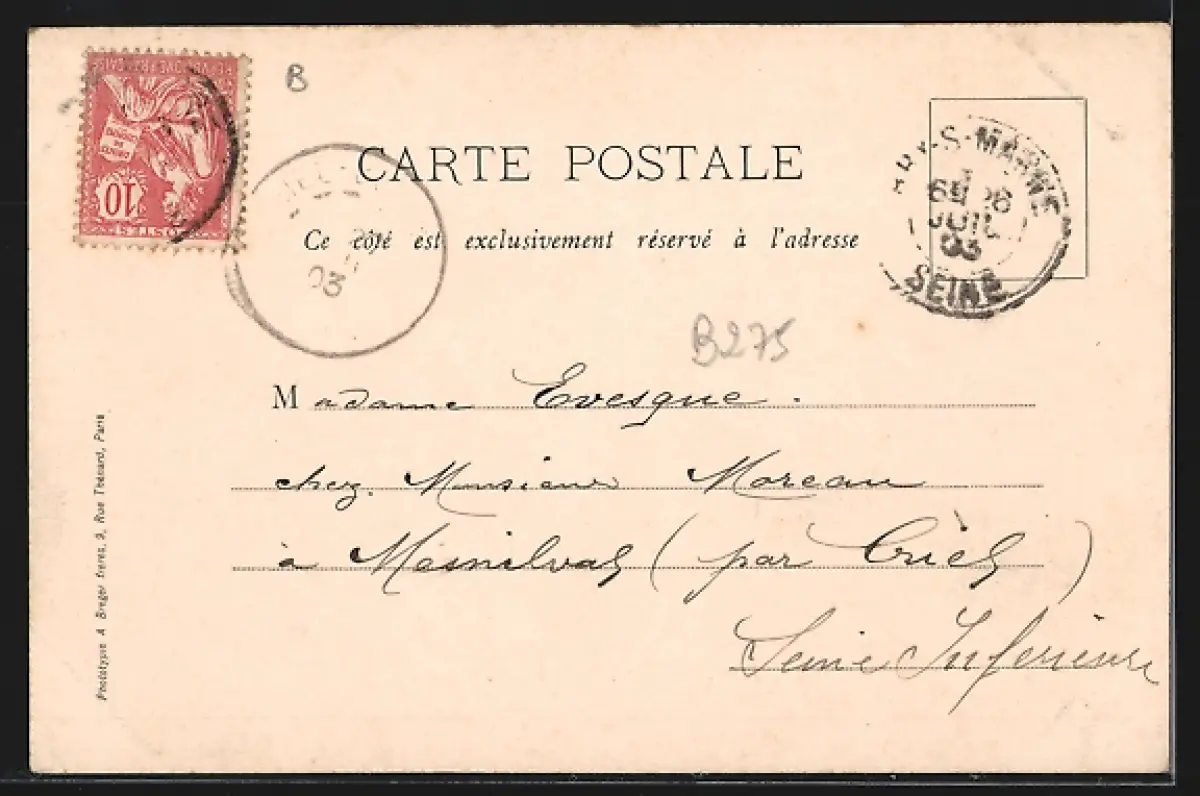 REPUBLIQUE FRANÇAISE
DROITS DE L'HOMME
10
POSTES
B
CARTE POSTALE
RY-S-MARNE
6E 28
JUIL
03
SEINE
Ce côté est exclusivement réservé à l'adresse
03
B275
Madame Evesque.
chez Monsieur Moreau
à Mesnilval (par Criel)
Seine Inférieure
Phototypie A Breger frères, 9, Rue Thénard, Paris